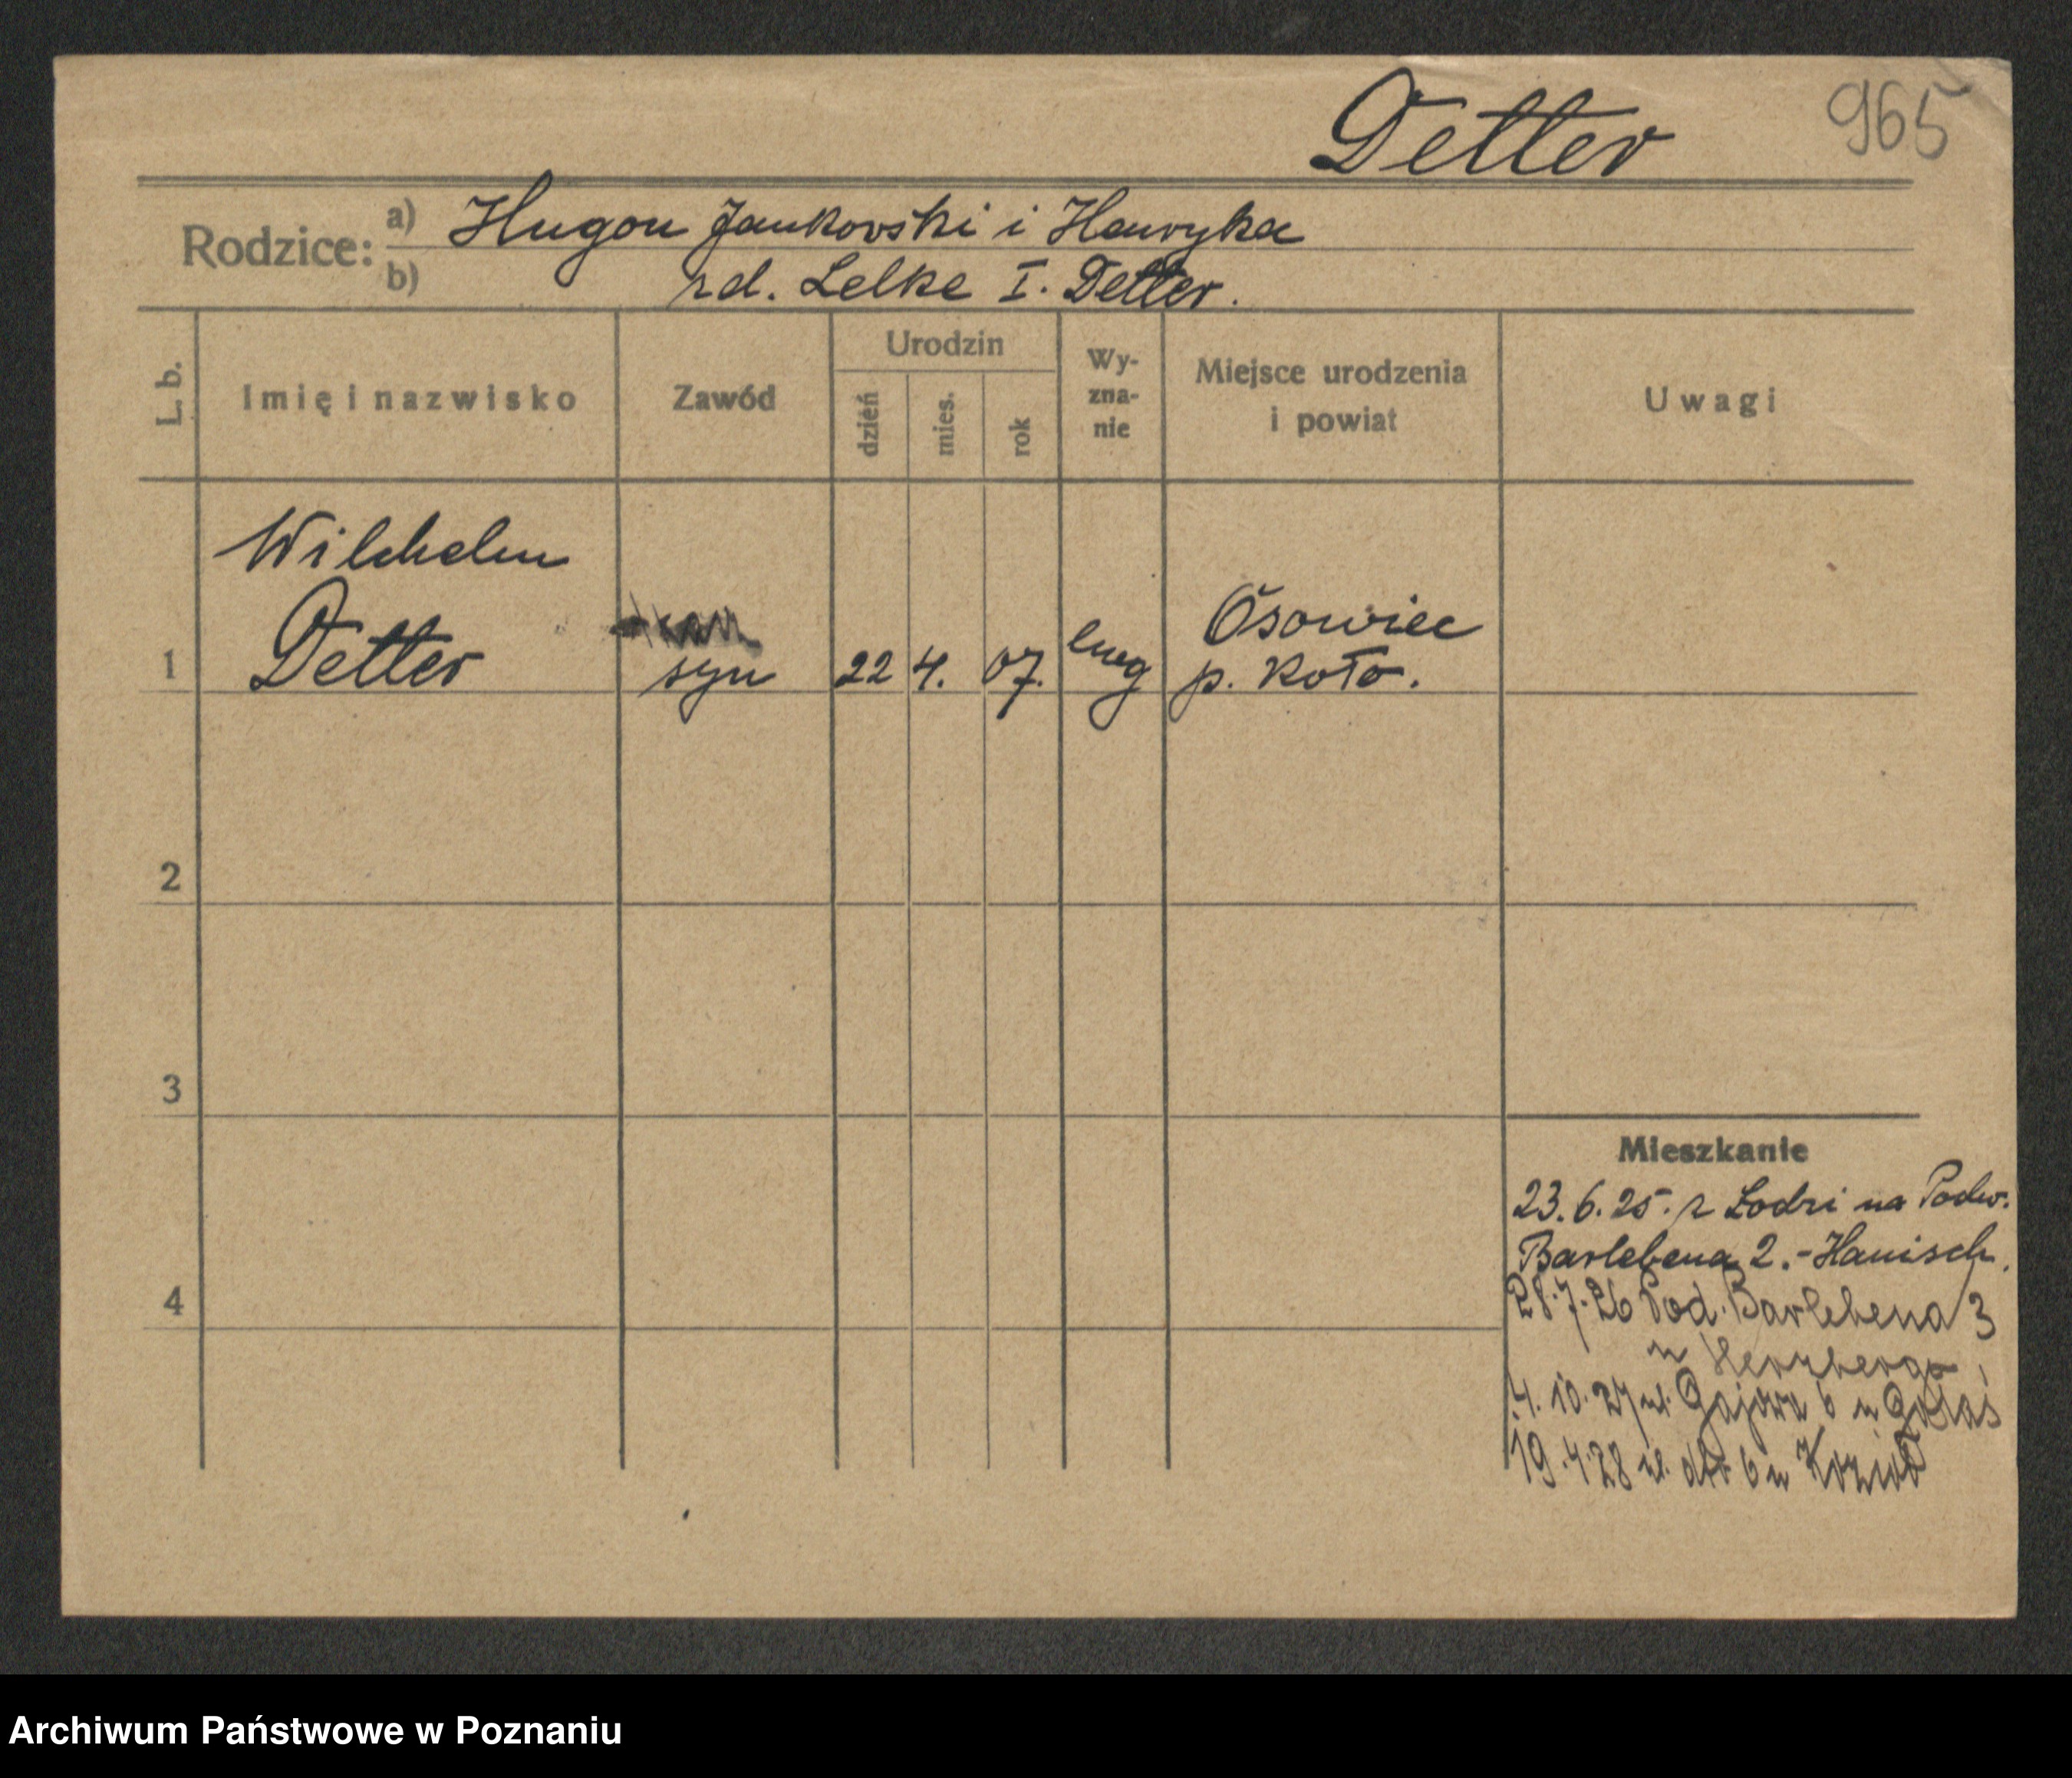 Detter 965
Rodzice: a) Hugon Jankowski i Henryka
b) zd. Lelke I. Detter.
L. b. Imię i nazwisko Zawód Urodzin dzień mies. rok Wy-zna-nie Miejsce urodzenia i powiat Uwagi
Wilchelm
Detter
1 syn 22 4. 07. ewg Osowiec
p. Koło.
2
3
Mieszkanie
23.6.25. z Lodzi na Podw.
Barlebena 2.-Hanisch.
4
28.7.26 Pod. Barlebena 3
u Herzberga
4.10.27 ul. Gajowa 6 u
19.4.28 ul. 6 u
Archiwum Państwowe w Poznaniu